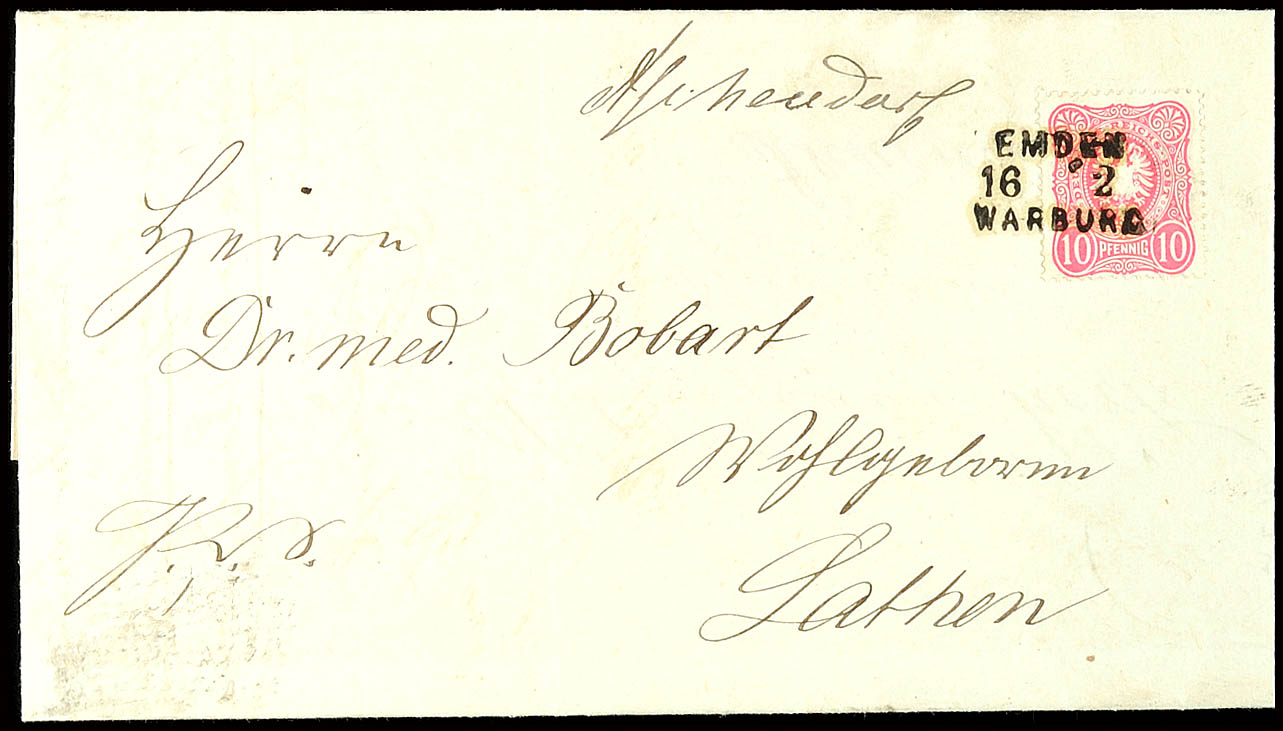 Aschendorf
EMDEN
16 2
WARBURG
REICHS-POST
10 PFENNIG 10
Herrn
Dr. med. Bobart
Wohlgeboren
Lathen